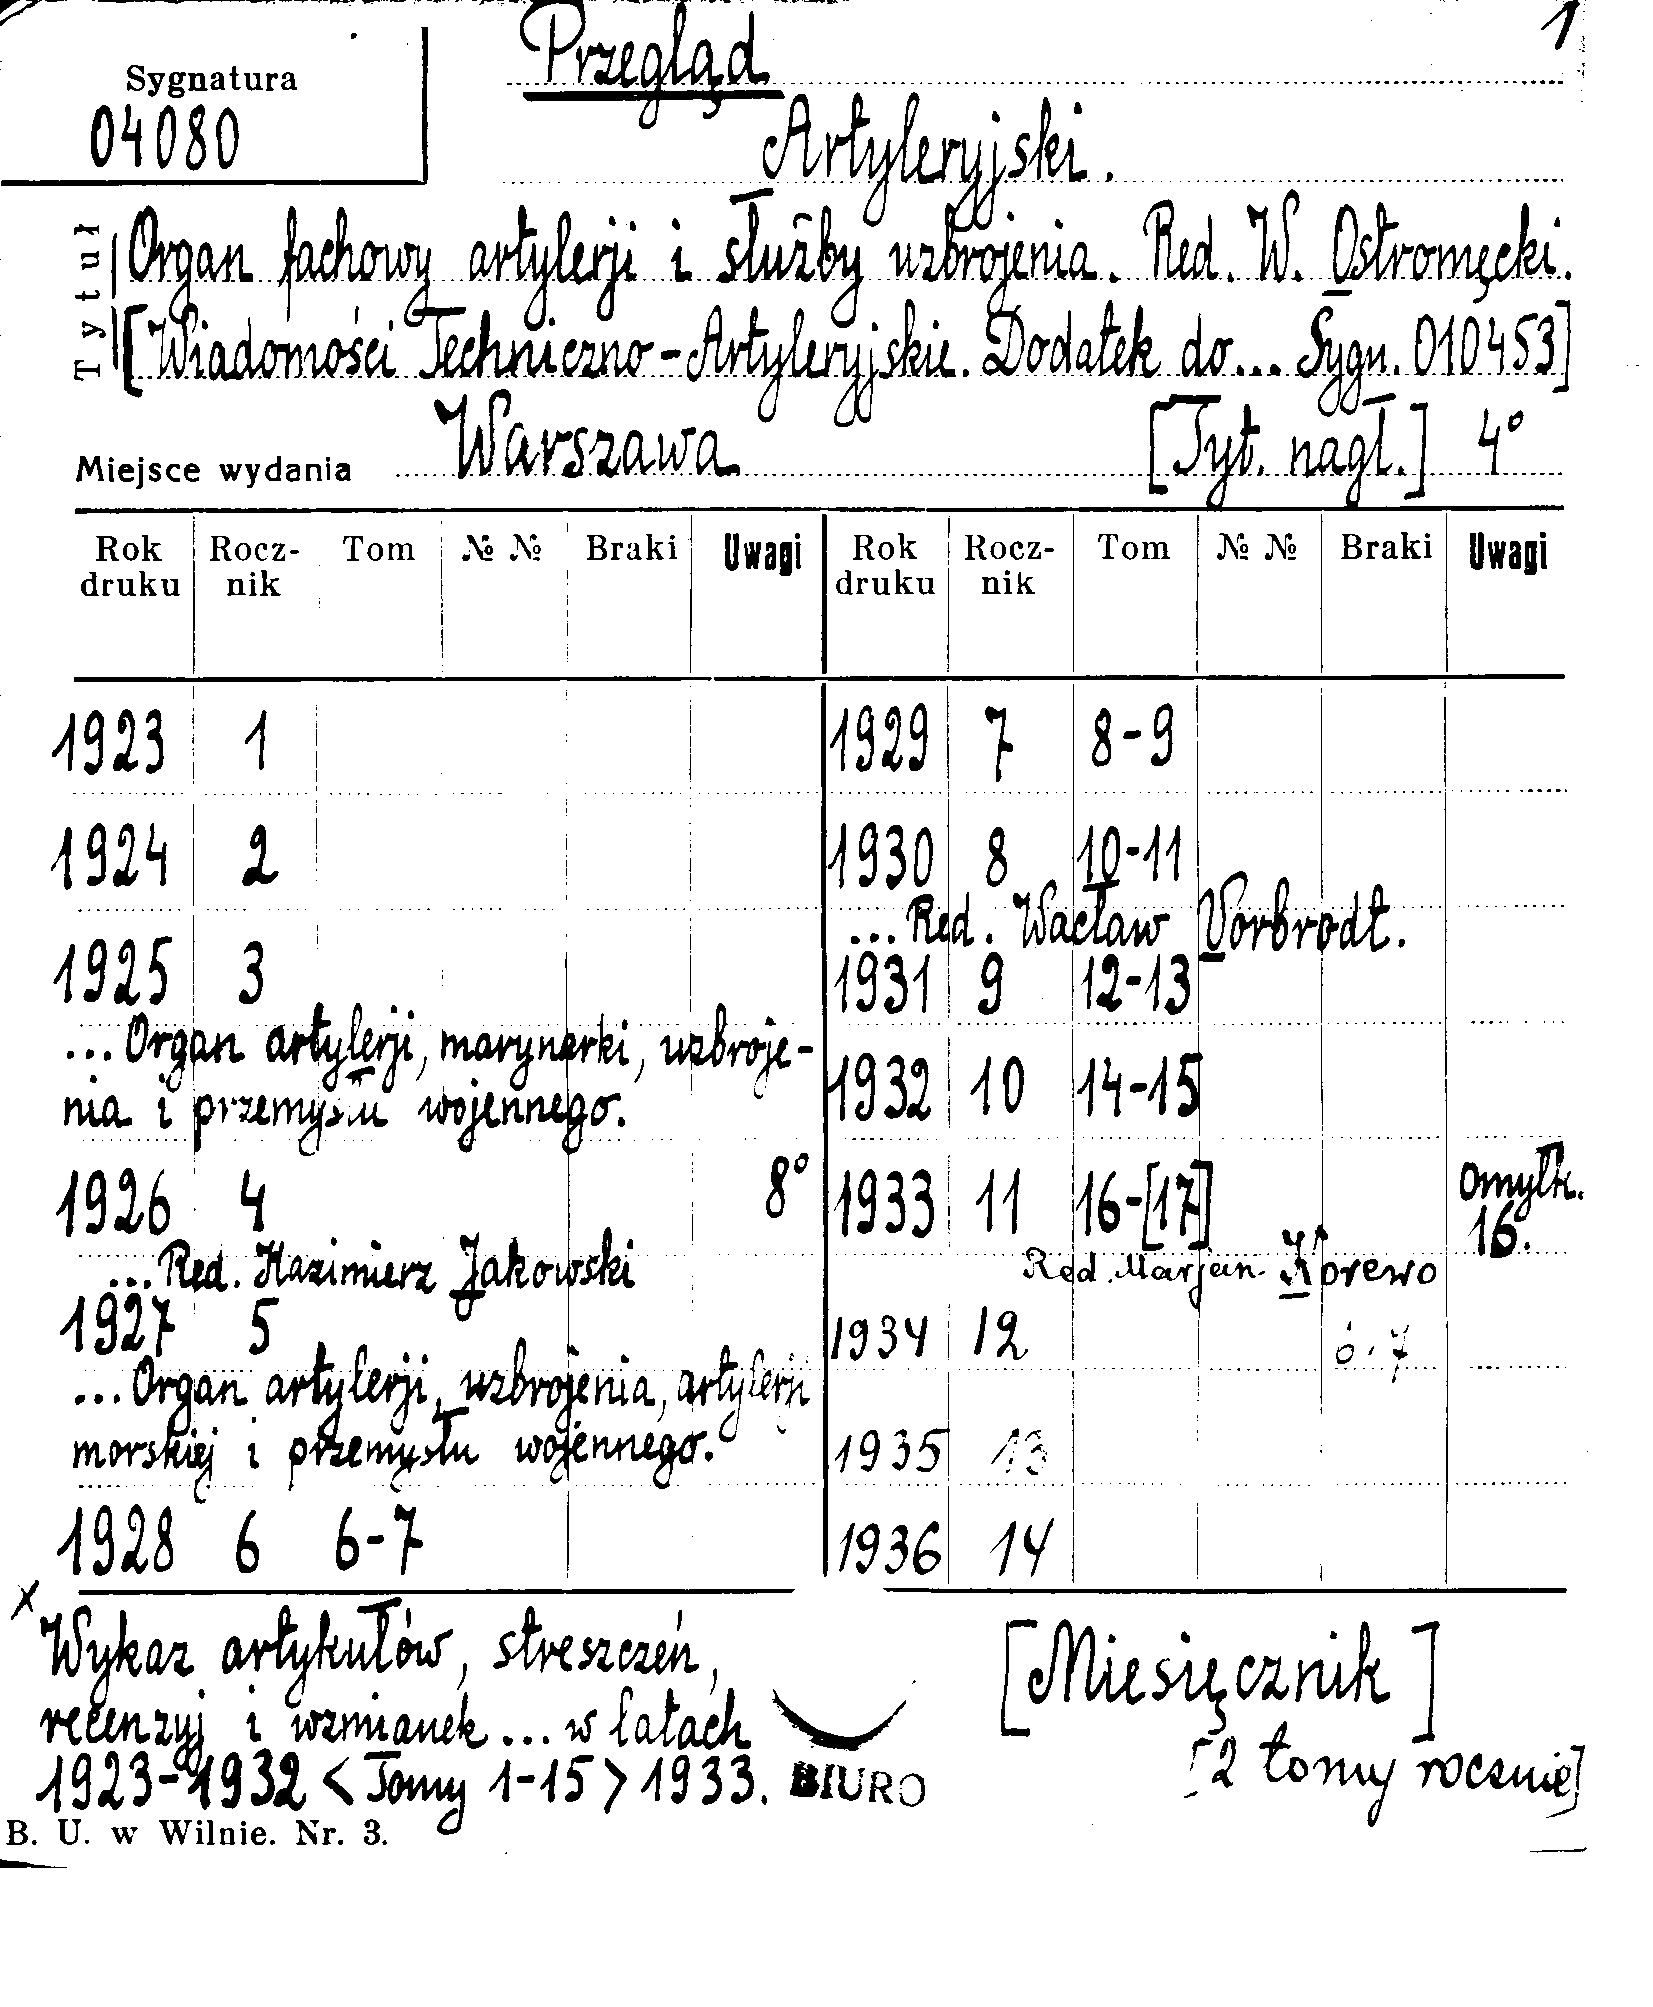 1
Sygnatura
04080
Przegląd
Artyleryjski.
Tytuł
Organ fachowy artylerji i służby uzbrojenia. Red. W. Ostromęcki.
[Wiadomości Techniczno-Artyleryjskie. Dodatek do... Sygn. 010453]
Miejsce wydania Warszawa [Tyt. nagł.] 4°
Rok druku Rocz-nik Tom № № Braki Uwagi Rok druku Rocz-nik Tom № № Braki Uwagi
1923 1
1924 2
1925 3
...Organ artylerji, marynarki, uzbroje-
nia i przemysłu wojennego.
1926 4 8°
...Red. Kazimierz Jakowski
1927 5
...Organ artylerji, uzbrojenia, artylerji
morskiej i przemysłu wojennego.
1928 6 6-7
1929 7 8-9
1930 8 10-11
...Red. Wacław Vorbrodt.
1931 9 12-13
1932 10 14-15
1933 11 16-[17] Omyłk.
16.
Red. Marjan Korewo
1934 12 7
1935 13
1936 14
x
Wykaz artykułów, streszczeń,
recenzyj i wzmianek... w latach
1923-1932 < Tomy 1-15 > 1933.
BIURO
[Miesięcznik]
[2 tomy rocznie]
B. U. w Wilnie. Nr. 3.